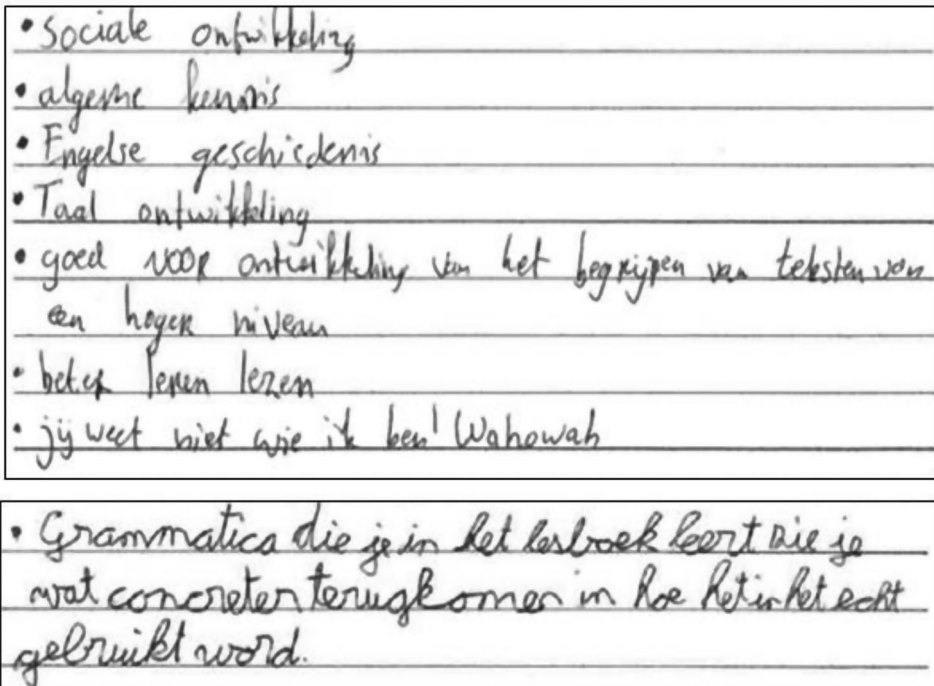 • sociale ontwikkeling
• algeme kennis
• Engelse geschiedenis
• Taal ontwikkeling
• goed voor ontwikkeling van het begrijpen van teksten van
een hoger niveau
• beter leren lezen
• jij weet niet wie ik ben! Wahowah
• Grammatica die je in het lesboek leert zie je
wat concreter terugkomen in hoe het in het echt
gebruikt word.